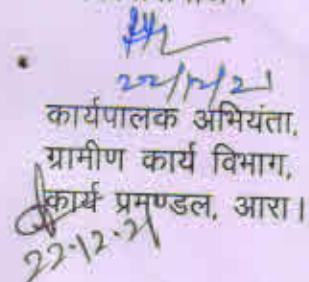 22/12/21
कार्यपालक अभियंता,
ग्रामीण कार्य विभाग,
कार्य प्रमण्डल, आरा।
22.12.21